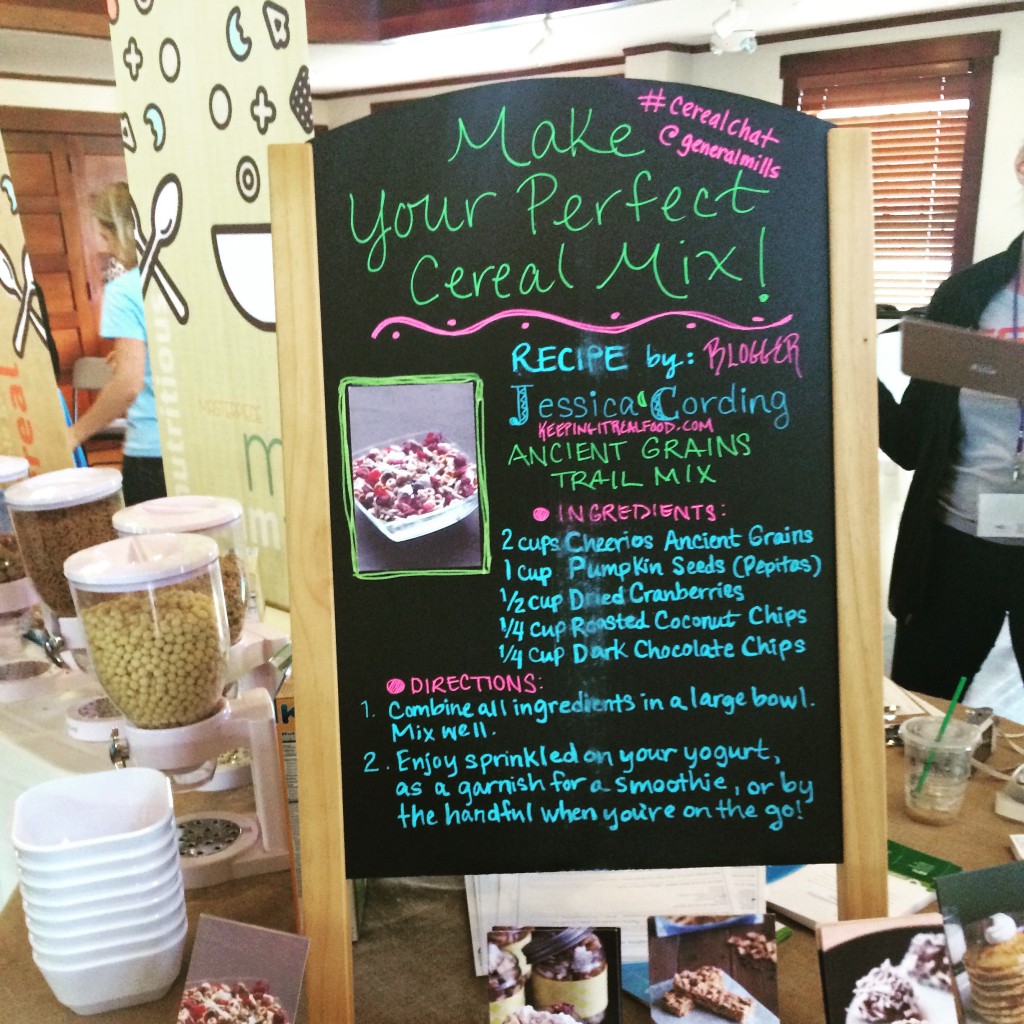 #cerealchat
@generalmills
Make
Your Perfect
Cereal Mix!
RECIPE by: BLOGGER
Jessica Cording
KEEPINGITREALFOOD.COM
ANCIENT GRAINS
TRAIL MIX
INGREDIENTS:
2 cups Cheerios Ancient Grains
1 cup Pumpkin Seeds (Pepitas)
1/2 cup Dried Cranberries
1/4 cup Roasted Coconut Chips
1/4 cup Dark Chocolate Chips
DIRECTIONS:
1. Combine all ingredients in a large bowl.
Mix well.
2. Enjoy sprinkled on your yogurt,
as a garnish for a smoothie, or by
the handful when you're on the go!